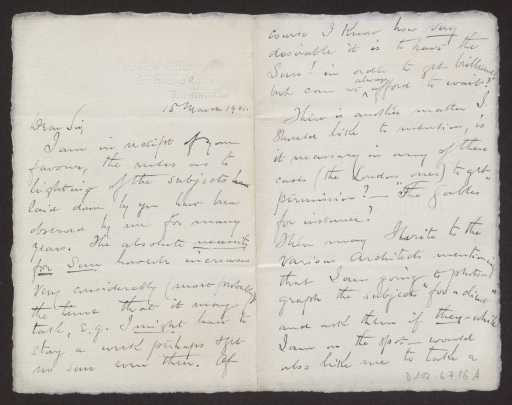 15 March 19
Dear Sir,
I am in receipt of your
favour, the rules as to
lighting of the subjects
laid down by you have been
observed by me for many
years. The absolute necessity
for Sun however increases
very considerably (more probably)
the time that it may
take, e.g. I might have to
stay a week perhaps & get
no sun even then. Of
course I know how very
desirable it is to have the
Sun! in order to get brilliancy
but can we always afford to wait?
There is another matter I
should like to mention, is
it necessary in any of these
cases (the London ones) to get
permission? — "The Gables"
for instance?
Then may I write to the
various Architects mentioning
that I am going to photo-
graph the subjects "for
and ask them if they — while
I am on the spot — would
also like me to take a